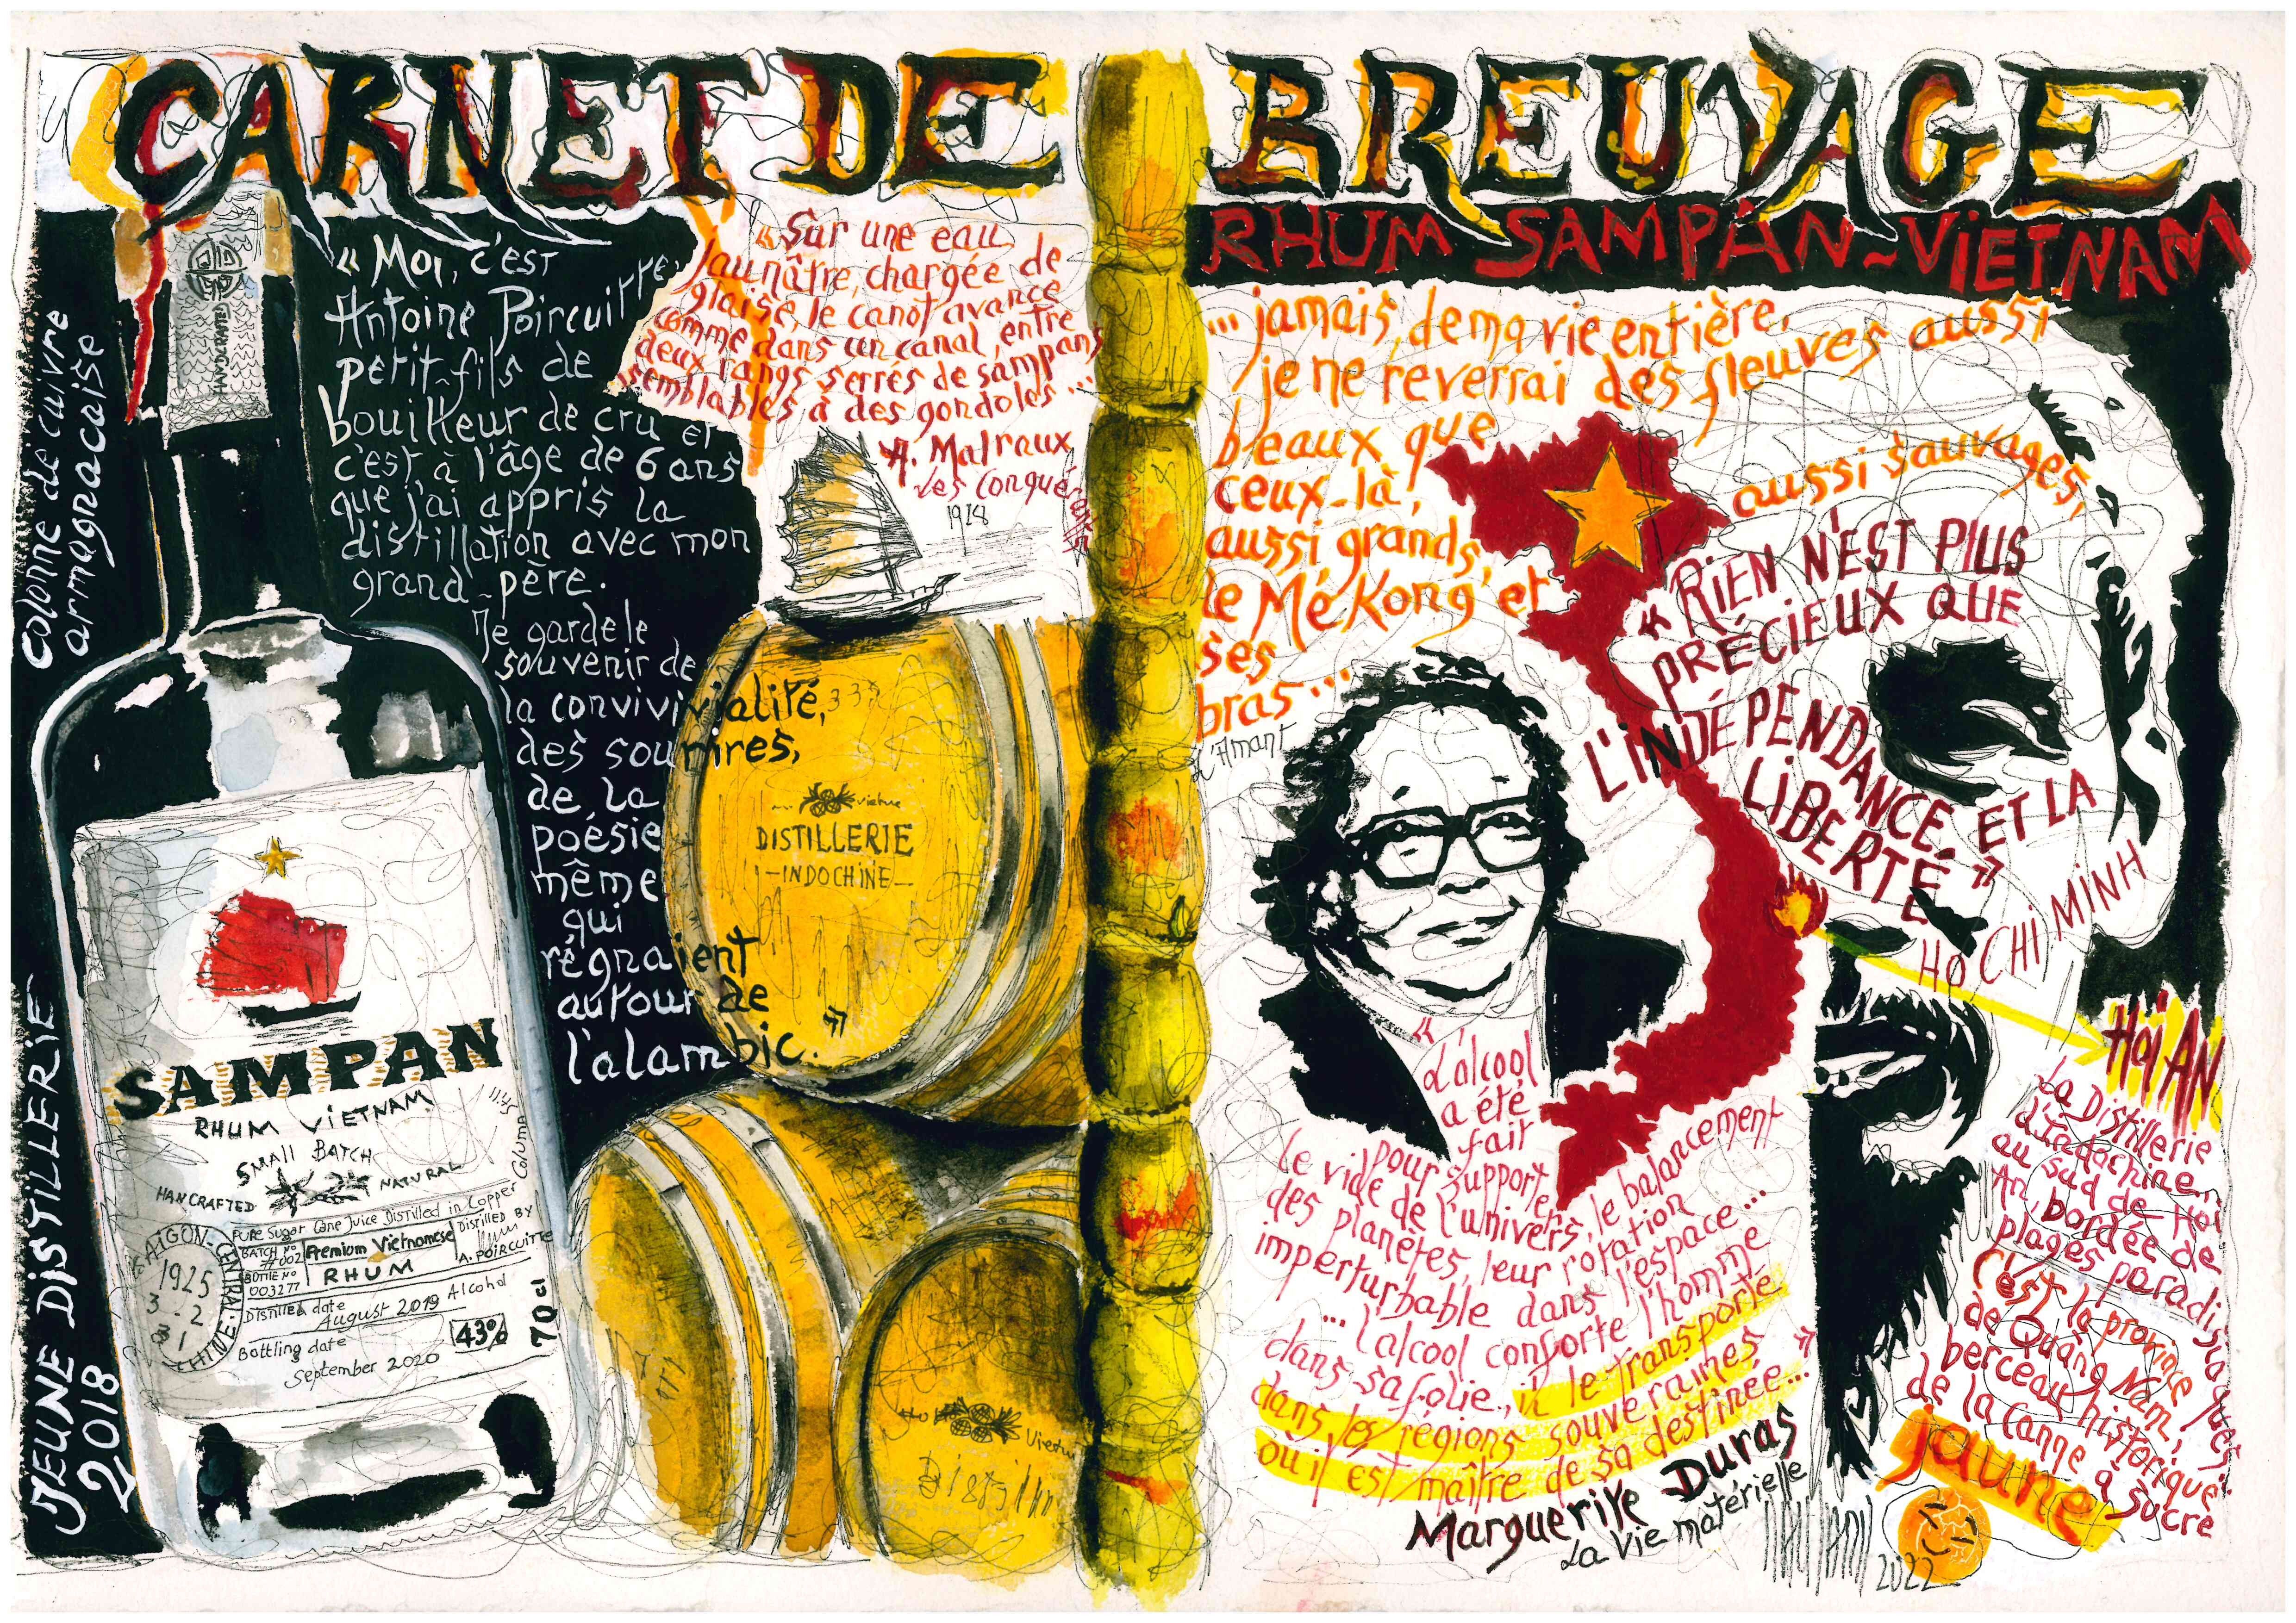 CARNET DE BREUVAGE
RHUM SAMPAN - VIETNAM
Colonne de cuivre
armagnacaise
JEUNE DISTILLERIE
2018
HANDCRAFTED
« Moi, c'est
Antoine Poircuitte,
petit-fils de
bouilleur de cru et
c'est à l'âge de 6 ans
que j'ai appris la
distillation avec mon
grand-père.
Je garde le
souvenir de
la convivialité,
des sourires,
de la
poésie
même
qui
régnaient
autour de
l'alambic. »
« Sur une eau
jaunâtre, chargée de
glaise, le canot avance
comme dans un canal, entre
deux rangs serrés de sampans
semblables à des gondoles...
A. Malraux
Les Conquérants
1928
DISTILLERIE
-INDOCHINE-
SAMPAN
RHUM VIETNAM
SMALL BATCH
HANCRAFTED NATURAL
Pure Sugar Cane Juice Distilled in Copper Column
BATCH N°
#002
BOTTLE N°
003277
Premium Vietnamese
RHUM
DISTILLED BY
A. POIRCUITTE
Distilled date
August 2019
Alcohol
43%
70 cl
Bottling date
September 2020
SAIGON-CENTRAL
1925
3-2
31
CHINE
... jamais, de ma vie entière,
je ne reverrai des fleuves aussi
beaux que
ceux-là,
aussi grands,
aussi sauvages,
le Mékong et
ses
bras...
L'Amant
« RIEN N'EST PLUS
PRÉCIEUX QUE
L'INDÉPENDANCE ET LA
LIBERTÉ »
HO CHI MINH
« L'alcool
a été
fait
pour supporter
le vide de l'univers, le balancement
des planètes, leur rotation
imperturbable dans l'espace...
... l'alcool conforte l'homme
dans sa folie, il le transporte
dans les régions souveraines
où il est maître de sa destinée... »
Marguerite Duras
La Vie matérielle
HOÏ AN
La Distillerie
d'Indochine...
au sud de Hoi
An, bordée de
plages paradisiaques!
C'est la province
de Quảng Nam,
berceau historique
de la canne à sucre
jaune
2022